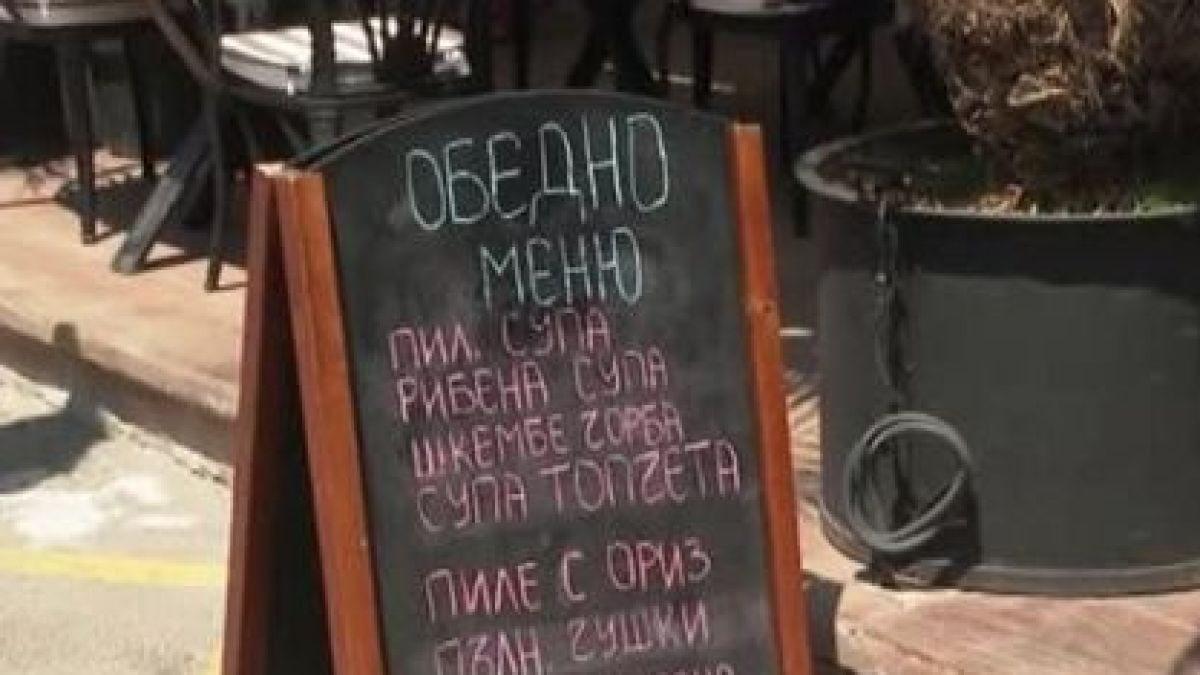 ОБЕДНО
МЕНЮ
ПИЛ. СУПА
РИБЕНА СУПА
ШКЕМБЕ ЧОРБА
СУПА ТОПЧЕТА
ПИЛЕ С ОРИЗ
ПЪЛН. ЧУШКИ